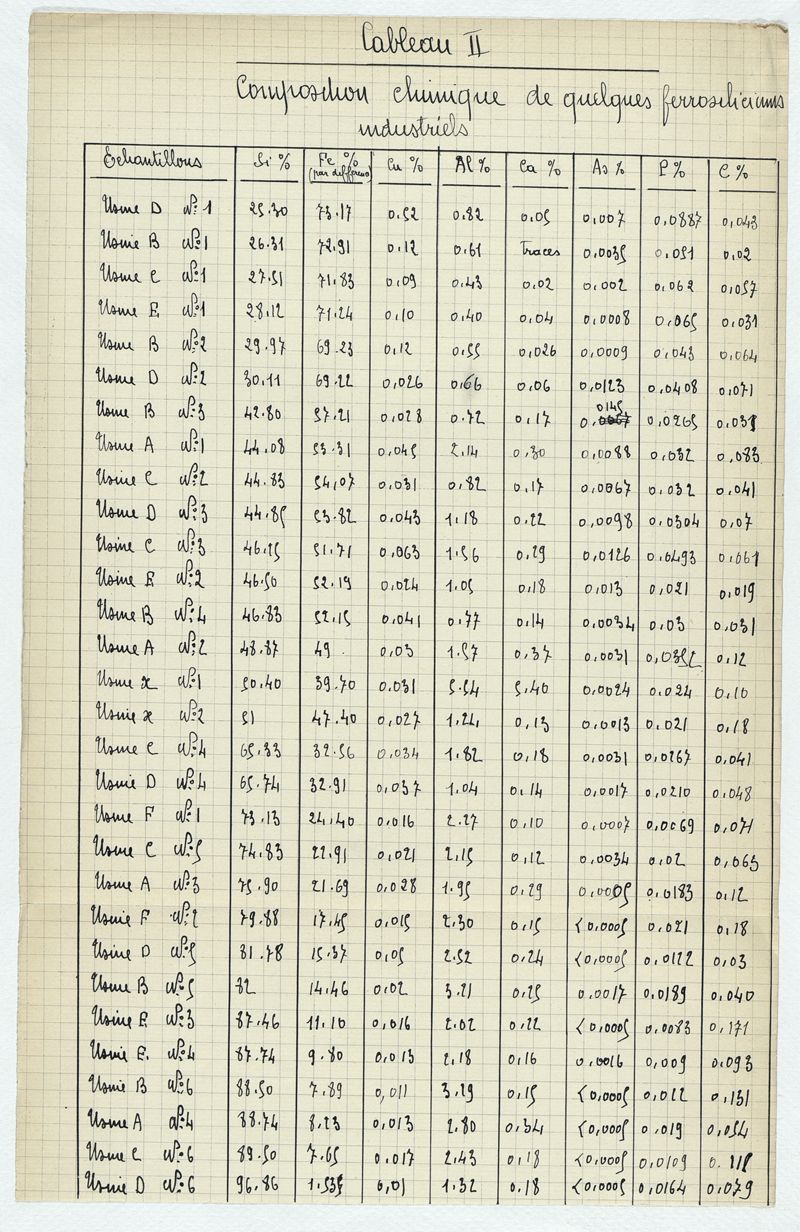 Tableau II
Composition chimique de quelques ferrosiliciums
industriels
Echantillons Si % Fe % (par différence) Cu % Al % Ca % As % P % C %
Usine D N°1 25.30 73.17 0.52 0.82 0.05 0.007 0.0887 0.043
Usine B N°1 26.31 72.91 0.12 0.61 Traces 0.0035 0.051 0.02
Usine C N°1 27.51 71.83 0.09 0.43 0.02 0.002 0.062 0.057
Usine E N°1 28.12 71.24 0.10 0.40 0.04 0.0008 0.065 0.031
Usine B N°2 29.97 69.23 0.12 0.55 0.026 0.0009 0.043 0.064
Usine D N°2 30.11 69.22 0.026 0.66 0.06 0.0123 0.0408 0.071
Usine B N°3 42.80 57.21 0.028 0.72 0.17 0.0145 0.0265 0.031
Usine A N°1 44.08 53.31 0.045 2.14 0.30 0.0088 0.032 0.083
Usine C N°2 44.83 54,07 0.031 0.82 0.17 0.0067 0.032 0.041
Usine D N°3 44.85 53.82 0.043 1.18 0.22 0.0098 0.0304 0.07
Usine C N°3 46.25 51.71 0.063 1.56 0.29 0.0126 0.0493 0.061
Usine E N°2 46.50 52.19 0.024 1.05 0.18 0.013 0.021 0.019
Usine B N°4 46.83 52.15 0.041 0.77 0.14 0.0034 0.03 0.031
Usine A N°2 48.87 49 0.03 1.57 0.37 0.0031 0.0352 0.12
Usine x N°1 50.40 39.70 0.031 5.54 5.40 0.0024 0.024 0.10
Usine x N°2 51 47.40 0.027 1.24 0.13 0.0013 0.021 0.18
Usine C N°4 65.33 32.56 0.034 1.82 0.18 0.0031 0.0267 0.041
Usine D N°4 65.74 32.91 0.037 1.04 0.14 0.0017 0.0210 0.048
Usine F N°1 73.13 24.40 0.016 2.27 0.10 0.0007 0.0069 0.071
Usine C N°5 74.83 22.91 0.021 2.15 0.12 0.0034 0.02 0.065
Usine A N°3 75.90 21.69 0.028 1.95 0.29 0.0005 0.0183 0.12
Usine F N°2 79.88 17.45 0.015 2.30 0.15 <0.0005 0.021 0.18
Usine D N°5 81.78 15.37 0.05 2.52 0.24 <0.0005 0.0122 0.03
Usine B N°5 82 14.46 0.02 3.21 0.25 0.0017 0.0189 0.040
Usine E N°3 87.46 11.10 0.016 2.02 0.22 <0.0005 0.0083 0.171
Usine E. N°4 87.74 9.80 0.013 2.18 0.16 0.0016 0.009 0.093
Usine B N°6 88.50 7.89 0,011 3.29 0.15 <0.0005 0.022 0.131
Usine A N°4 88.74 8.23 0.013 2.80 0.34 <0.0005 0.019 0.054
Usine C N°6 89.50 7.65 0.017 2.43 0.18 <0.0005 0.0109
Usine D N°6 96.86 1.535 0,01 1.32 0.18 <0.0005 0.0164 0.079